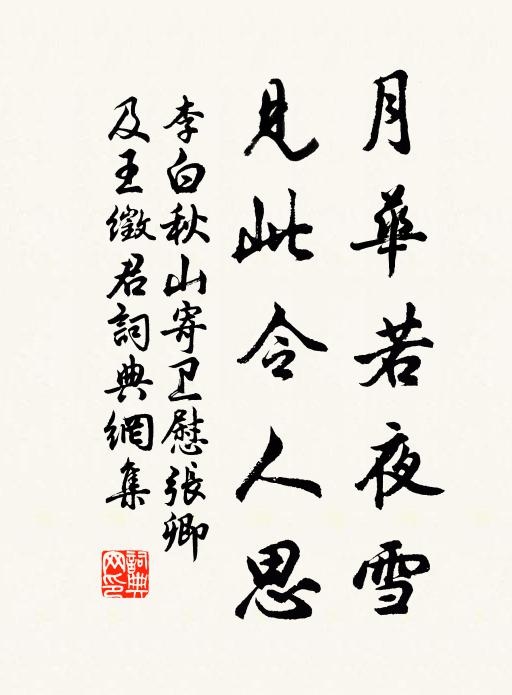 月華若夜雪
見此令人思
李白秋山寄卫慰張卿
及王徵君詞典網集
詞典网印